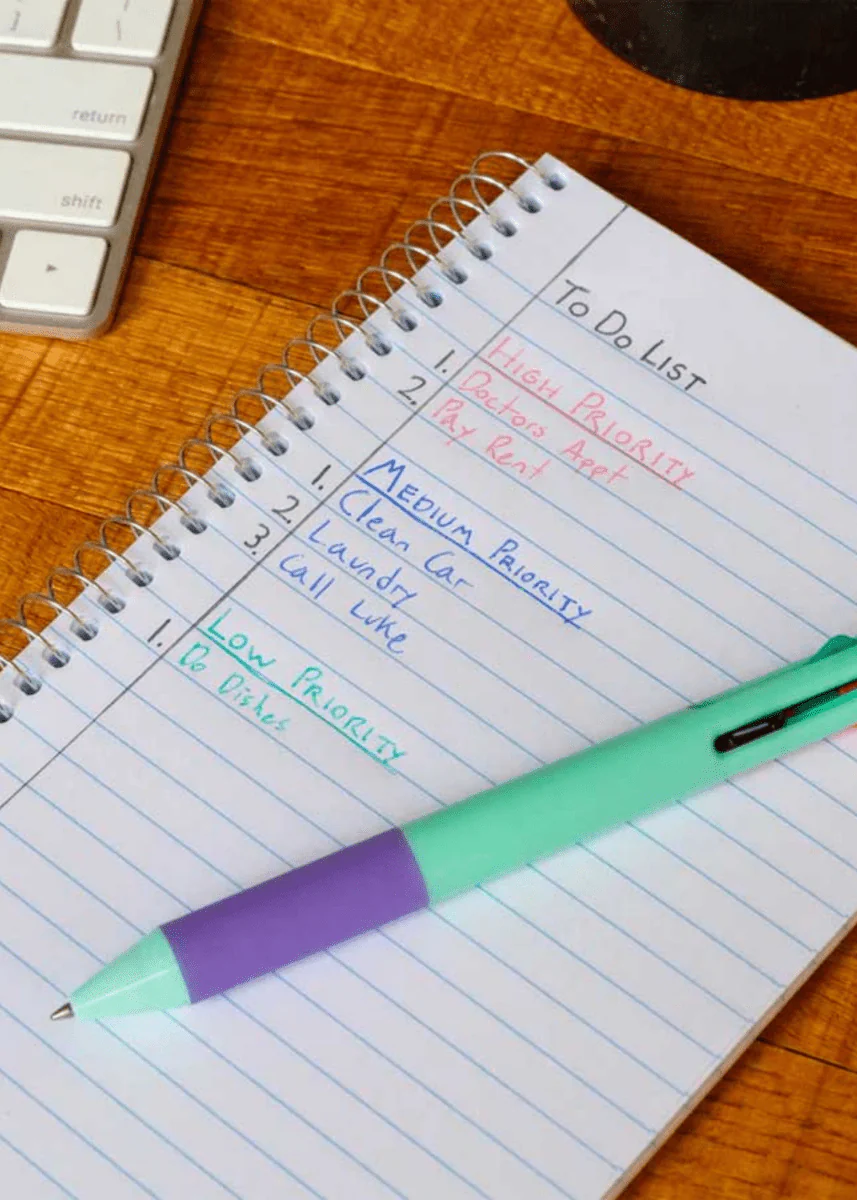 return
shift
To Do List
High Priority
1. Doctors Appt
2. Pay Rent
Medium Priority
1. Clean Car
2. Laundry
3. Call Luke
Low Priority
1. Do Dishes